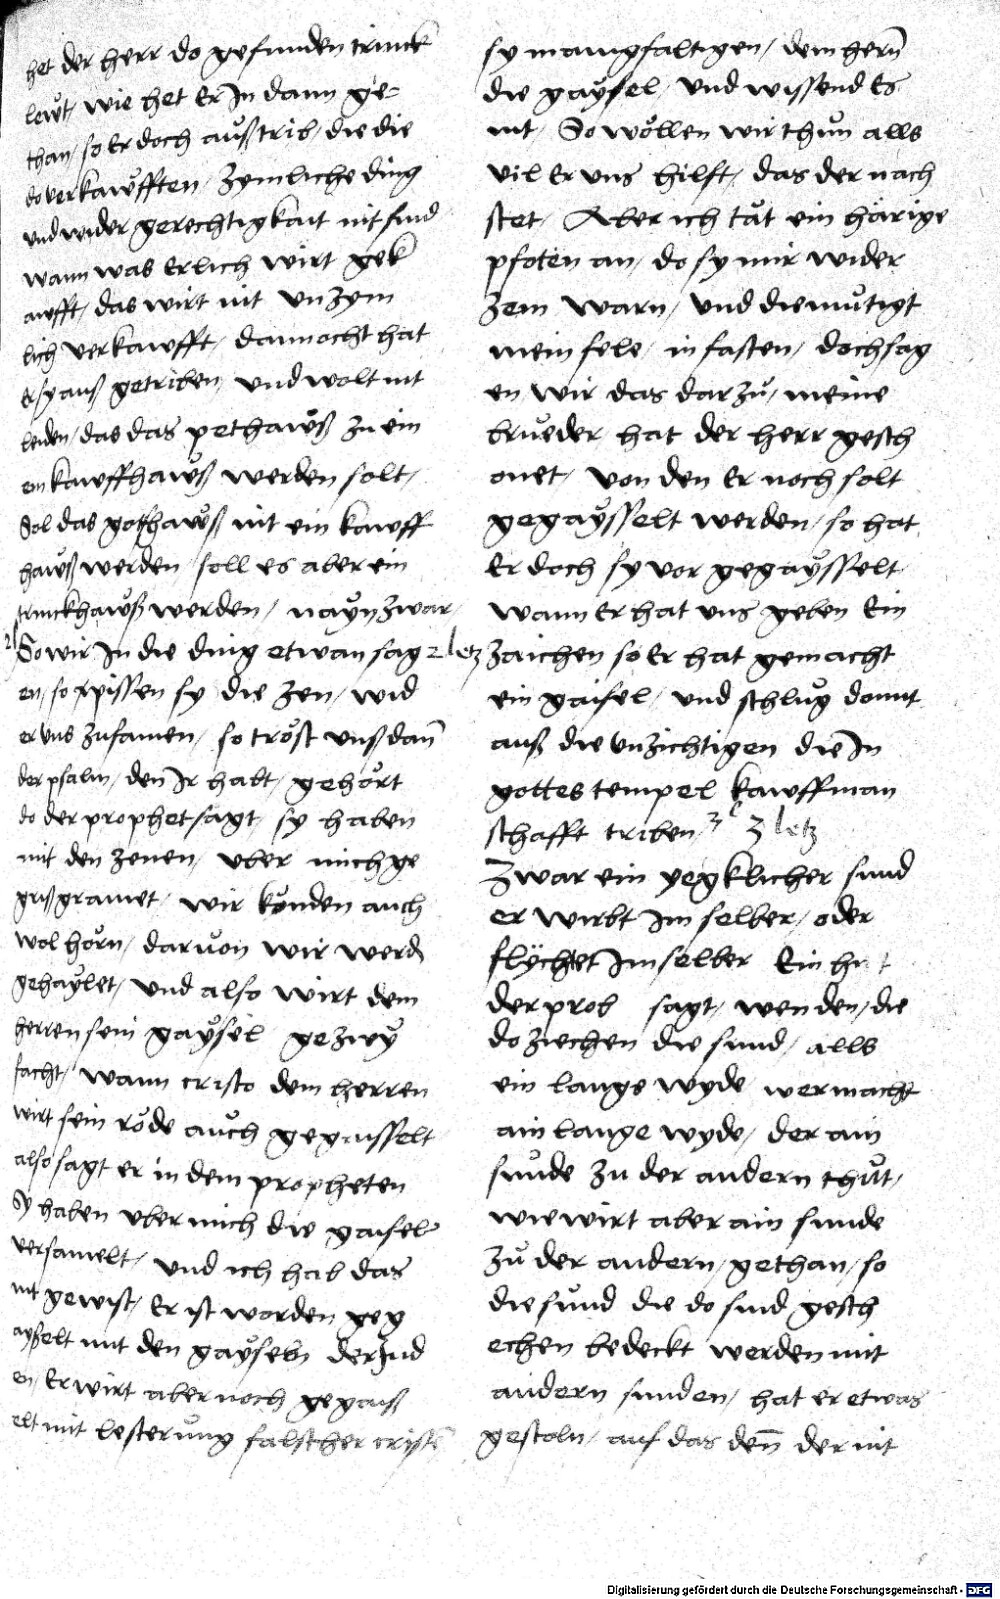 het der herr do gefunden trinck
lewt, wie het Er In dann ge-
than, so Er doch außtrib, die die
do verkawfften, zymliche ding
und wider gerechtigkait nit sind
wann was Erlich wirt gek
awfft, das wirt nit unzym
lich verkawfft, dannocht hat
Er sy auß getriben, und wolt nit
leiden, das das pethawß zu ein
em kawffhawß werden solt,
Sol das gotzhawß nit ein kawff
hawß werden, soll es aber ein
trinckhawß werden, nayn zwar,
So wir In die ding etwan sag 2 letz
en, so pissen sy die zen, wid
er uns zusamen, so tröst unß dañ
der psalm, den Ir habt, gehört
do der prophet sagt, sy haben
mit den zenen, uber mich ge
grißgramet, wir kônden auch
wol hörn, darvon wir werd
gehaylet, und also wirt dem
herren sein gaysel gezwy
facht, wann cristo dem herren
wirt sein röde auch gegaisselt
also sagt er in dem propheten
Sy haben uber mich die gaisel
versamelt, und ich hab das
nit gewist, Er ist worden geg
ayßelt mit den gayseln der Jud
en, Er wirt aber noch gegaiß
elt mit lesterung falscher criste
sy manigfaltigen, dem herñ
die gaysel, und wissend Es
nit, So wöllen wir thun alls
vil Er uns hilft, das der nach
stet, Aber ich tät ein härige
pfoten an, do sy mir wider
zem warn, und diemutigt
mein sele, in fasten, doch sag
en wir das darzu, meine
brueder hat der herr gesch
onet, von den Er noch solt
gegaysselt werden, so hat
Er doch sy vor gegaysselt,
wann Er hat uns geben Ein
zaichen so Er hat gemacht
ein gaisel, und schlug domit
auß die unzichtigen die In
gottes tempel kawffman
schafft triben, 3 letz
Zwar ein yegklicher sund
er wirbt Im selber, oder
flÿchtet Im selber Ein
der prob sagt, wenden, die
do ziechen die sund, alls
ein lange wyde wer macht
ain lange wyde, der ain
sunde zu der andern thut,
wie wirt aber ain sunde
zu der andern, gethan, so
die sund die do sind gesch
echen bedeckt werden mit
andern sunden, hat er etwas
gestoln, auf das deñ der nit
Digitalisierung gefördert durch die Deutsche Forschungsgemeinschaft - DFG